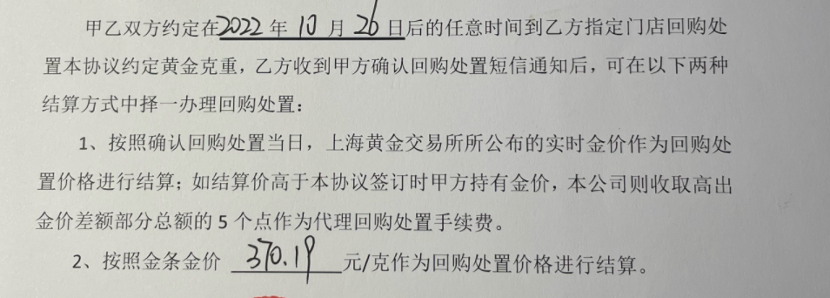 甲乙双方约定在2022年10月26日后的任意时间到乙方指定门店回购处
置本协议约定黄金克重，乙方收到甲方确认回购处置短信通知后，可在以下两种
结算方式中择一办理回购处置：
1、按照确认回购处置当日，上海黄金交易所所公布的实时金价作为回购处
置价格进行结算；如结算价高于本协议签订时甲方持有金价，本公司则收取高出
金价差额部分总额的5个点作为代理回购处置手续费。
2、按照金条金价 370.19 元/克作为回购处置价格进行结算。